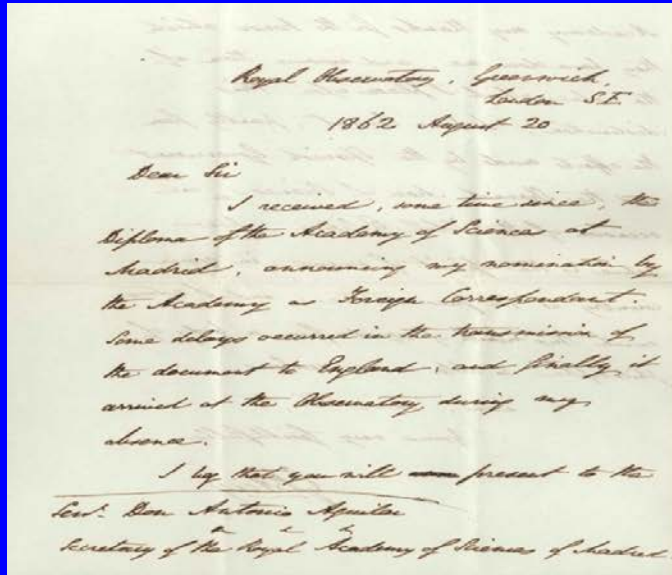 Royal Observatory, Greenwich,
London S.E.
1862 August 20
Dear Sir
I received, some time since, the
Diploma of the Academy of Sciences at
Madrid, announcing my nomination by
the Academy as Foreign Correspondent.
Some delays occurred in the transmission of
the document to England, and finally it
arrived at the Observatory during my
absence.
I beg that you will present to the
Señr. Don Antonio Aguilar
Secretary of the Royal Academy of Sciences of Madrid